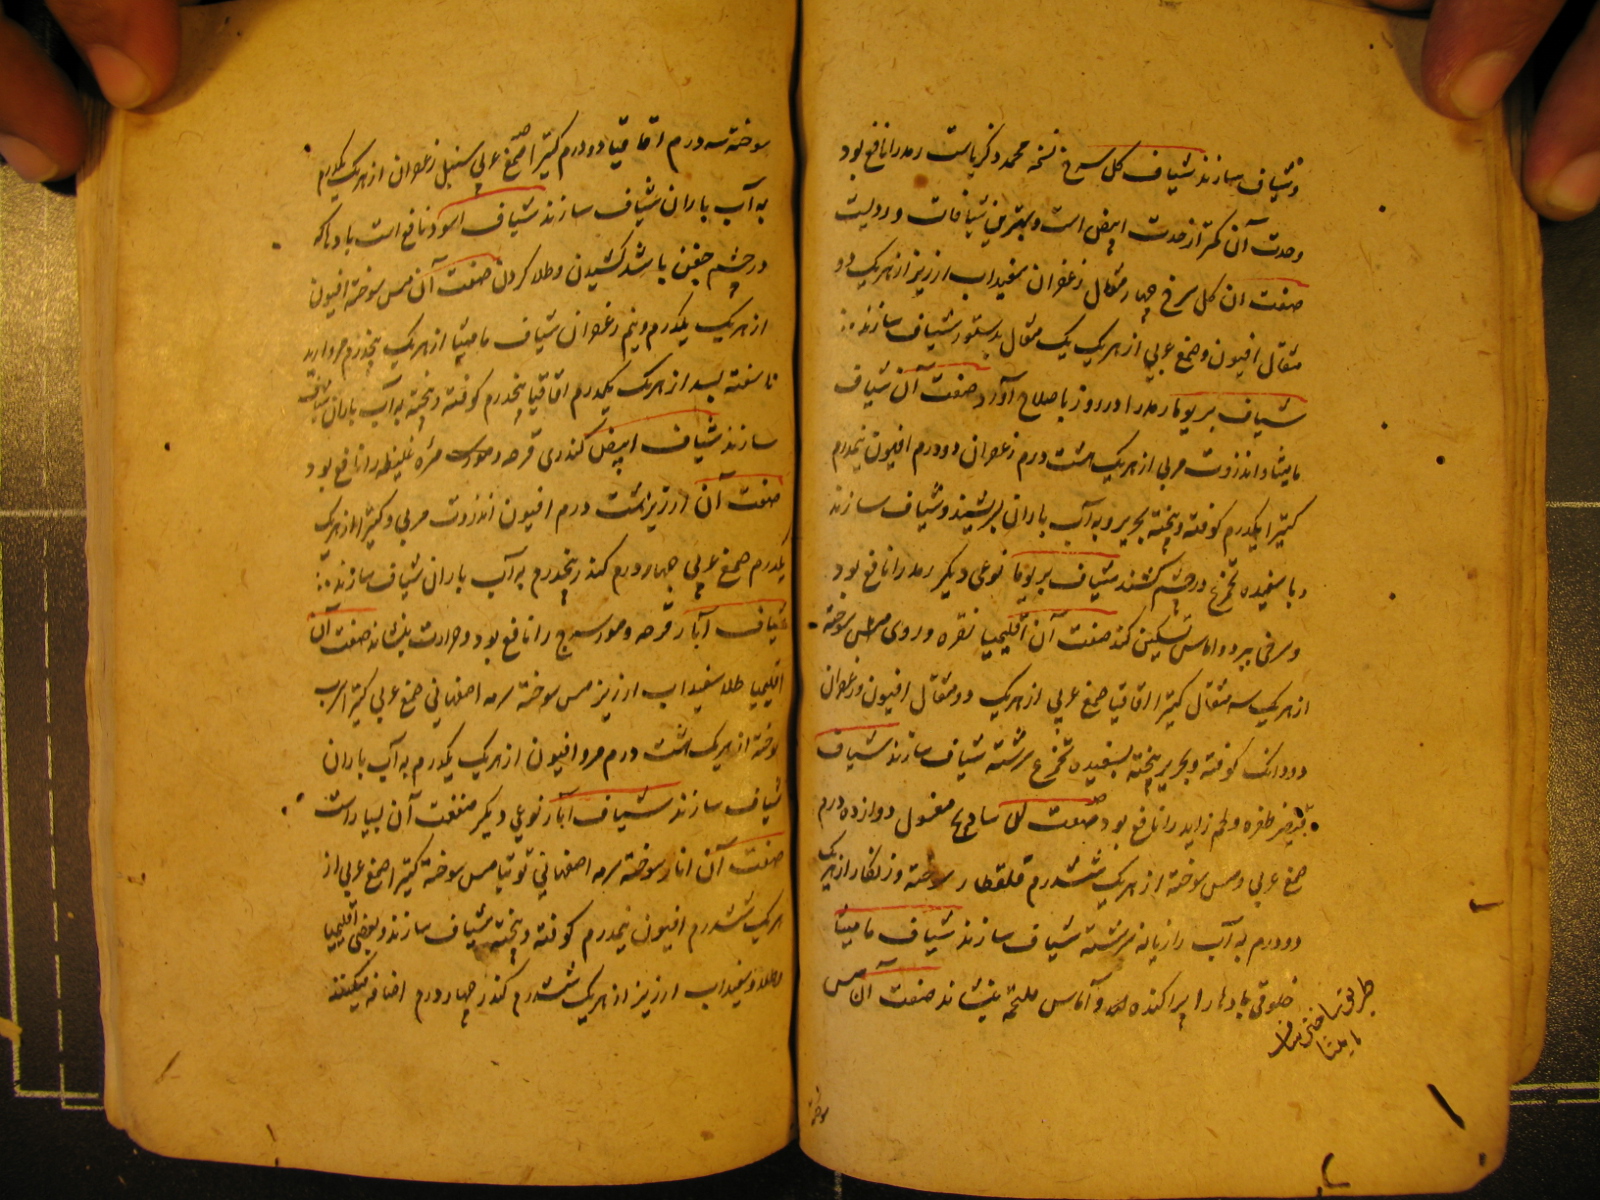 و شیاف سازند شیاف کل سرخ نسخه محمد زکریاست رمد را نافع بود
وحدت آن کمتر از حدت ابیض است و بهترین شیافات وردیست
صفت آن کل سرخ چهار مثقال زعفران سفیداب ارزیز از هریک دو
مثقال افیون و صمغ عربی از هریک یک مثقال بدستور شیاف سازند
شیاف بریوما رمد را در روز باصلاح آورد صفت آن شیاف
مامیثا و انذروت مربی از هریک هشت درم زعفران دو درم افیون نیمدرم
کتیرا یکدرم کوفته و پخته بحریر و به آب باران بسرشند و شیاف سازند
و با سفیده تخم مرغ در چشم کشند شیاف بریوما نوعی دیکر رمد را نافع بود
و سرخی ببرد و اماس تسکین کند صفت آن اقلیمیا نقره و روی مس سوخته
از هریک سه مثقال کتیرا اقاقیا صمغ عربی از هریک دو مثقال افیون و زعفران
دو دانک کوفته و بحریر پخته بسفیده تخم مرغ سرشته شیاف سازند شیاف
قیصر ظفره و لحم زاید را نافع بود صفت آن سادنج مغسول دوازده درم
صمغ عربی و مس سوخته از هریک ششدرم قلقطار سوخته و زنکار از هریک
دو درم به آب رازیانه سرشته شیاف سازند شیاف مامیثا
خلوقی بادها را پراکنده کند و آماس ملتحمه بنشاند صفت آن مس
طریق ساختن شیاف
مامیثا
سوخته
سوخته سه درم اقاقیا دو درم کتیرا صمغ عربی سنبل زعفران از هریک یکدرم
به آب باران شیاف سازند شیاف اسود نافع است بادها که
در چشم جفن باشد کشیدن و طلا کردن صفت آن مس سوخته افیون
از هریک یکدرم و نیم زعفران شیاف مامیثا از هریک پنجدرم مروارید
ناسفته بسد از هریک یکدرم اقاقیا پنجدرم کوفته و پخته به آب باران شیاف
سازند شیاف ابیض کندری قرحه و مورسرج و مره غلیظه را نافع بود
صفت آن ارزیز هشت درم افیون انذروت مربی و کتیرا از هریک
یکدرم صمغ عربی چهار درم کندر پنجدرم به آب باران شیاف سازند
شیاف آبار قرحه و مورسرج را نافع بود و حرارت بنشاند صفت آن
اقلیمیا طلا سفیداب ارزیز مس سوخته سرمه اصفهانی صمغ عربی کتیرا سرب
سوخته از هریک هشت درم مر و افیون از هریک یکدرم به آب باران
شیاف سازند شیاف آبار نوعی دیکر منفعت آن بسیار است
صفت آن انار سوخته سرمه اصفهانی توتیا مس سوخته کتیرا صمغ عربی از
هریک ششدرم افیون نیمدرم کوفته و پخته شیاف سازند و بعضی اقلیمیا
و طلا و سفیداب ارزیز از هریک ششدرم کندر چهار درم اضافه میکنند